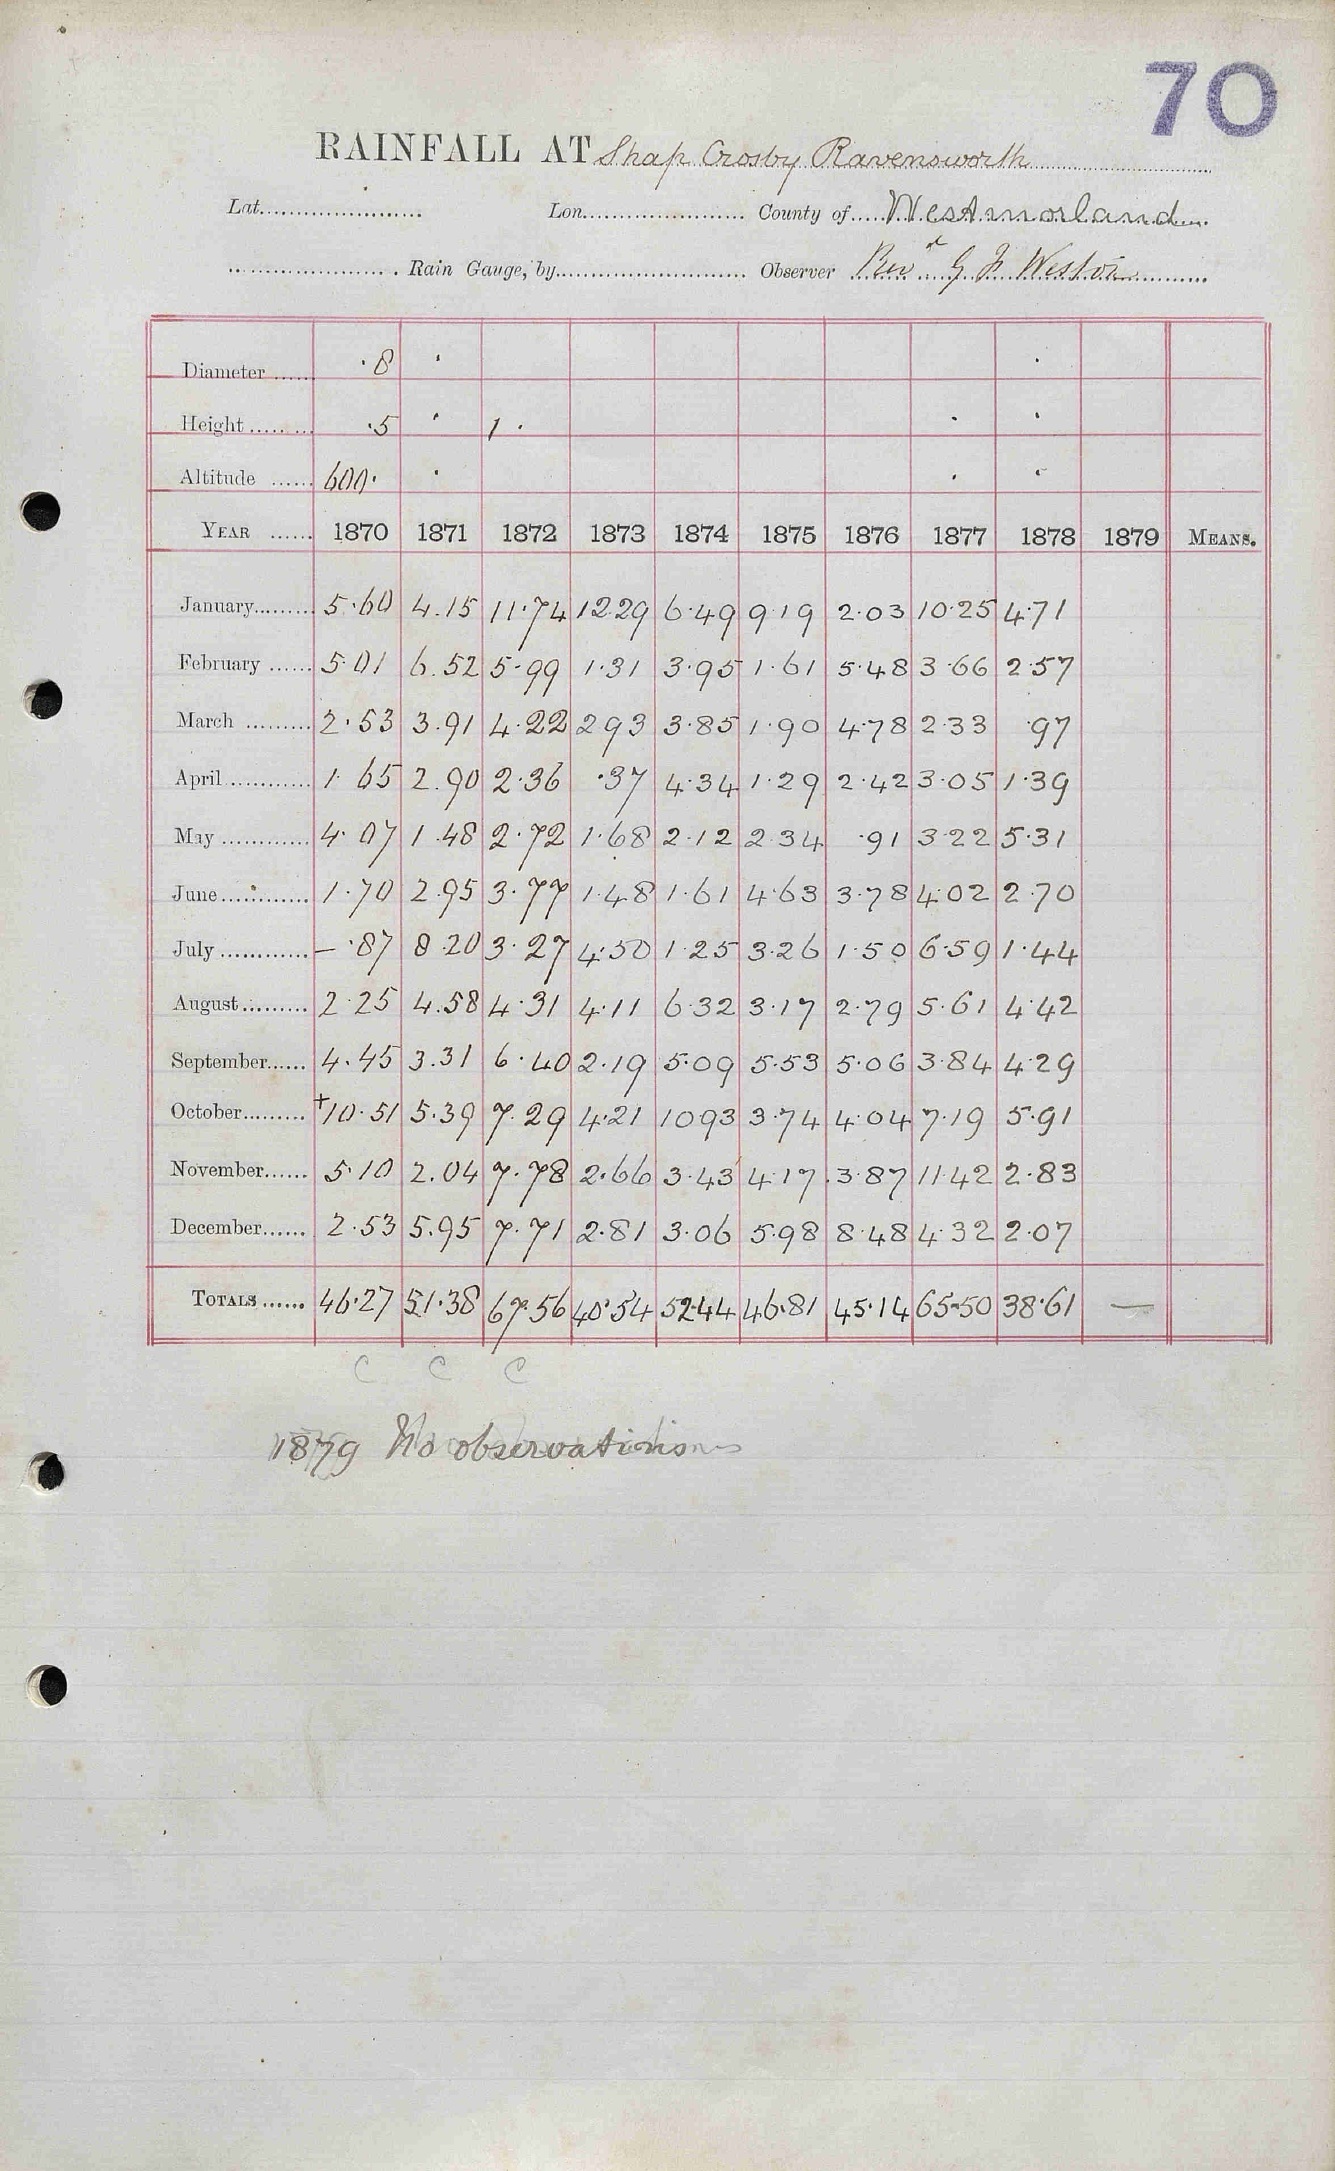 70
RAINFALL AT Shap Crosby Ravensworth
Lat. Lon. County of Westmorland
Rain Gauge, by Observer Revd G F Weston
Diameter ·8
Height ·5 1·
Altitude 600·
YEAR 1870 1871 1872 1873 1874 1875 1876 1877 1878 1879 MEANS.
January 5·60 4.15 11·74 12 29 6·49 9 19 2·03 10·25 4·71
February 5·01 6.52 5·99 1·31 3·95 1·61 5·48 3·66 2·57
March 2·53 3.91 4·22 2 93 3·85 1·90 4·78 2·33 ·97
April 1·65 2.90 2·36 ·37 4·34 1·29 2·42 3·05 1·39
May 4·07 1.48 2·72 1·68 2·12 2·34 ·91 3·22 5·31
June 1·70 2.95 3·77 1·48 1·61 4·63 3·78 4·02 2·70
July — ·87 8·20 3·27 4·50 1·25 3·26 1·50 6·59 1·44
August 2·25 4.58 4·31 4·11 6·32 3·17 2·79 5·61 4·42
September 4.45 3.31 6·40 2·19 5·09 5·53 5·06 3·84 4·29
October +10·51 5.39 7·29 4·21 10 93 3·74 4·04 7·19 5·91
November 5·10 2.04 7·78 2·66 3·43 4·17 3·87 11·42 2·83
December 2·53 5.95 7·71 2·81 3·06 5·98 8·48 4·32 2·07
TOTALS 46·27 51·38 67·56 40·54 52·44 46·81 45·14 65·50 38·61 —
C C C
1879 No observations